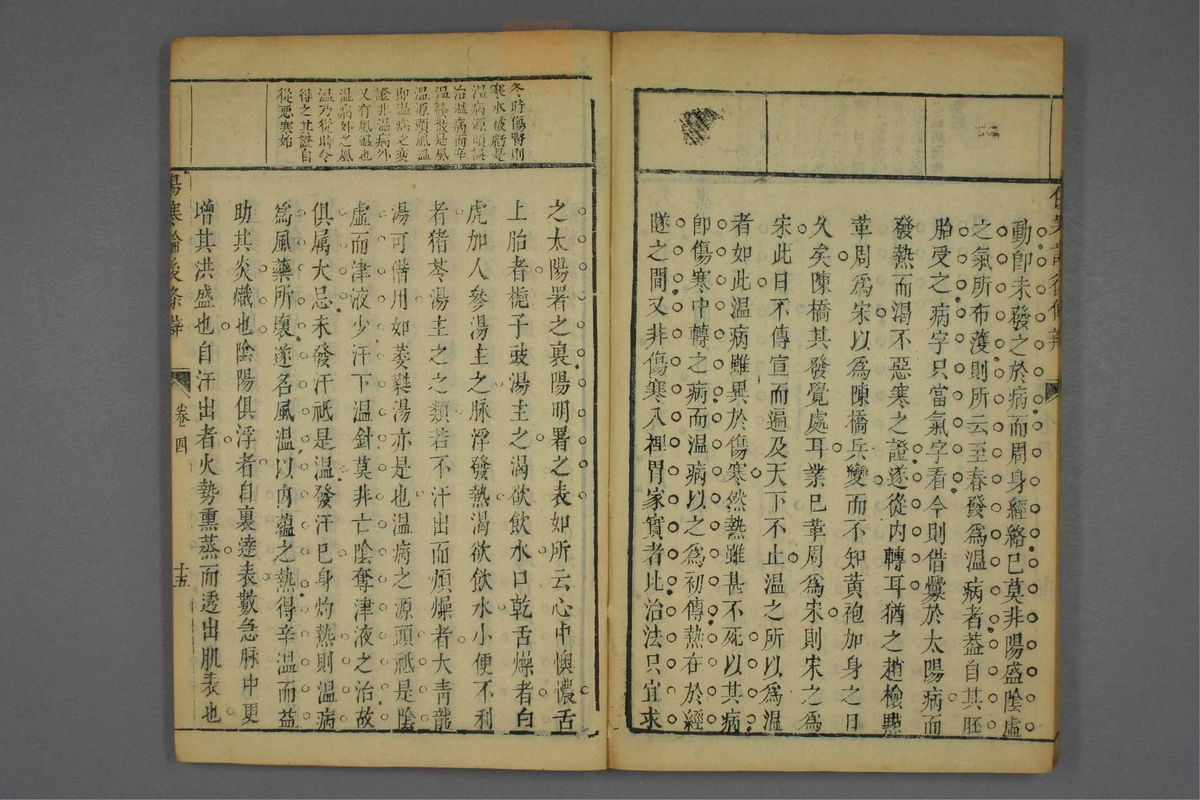 動卽未發之於病而周身經絡已莫非陽盛陰虛
之氣所布濩則所云至春發爲溫病者葢自其胚
胎受之病字只當氣字看今則借釁於太陽病而
發熱而渴不惡寒之證遂從內轉耳猶之趙檢點
革周爲宋以爲陳橋兵變而不知黃袍加身之日
久矣陳橋其發覺處耳業已革周爲宋則宋之爲
宋此日不傳宣而遍及天下不止溫之所以爲溫
者如此溫病雖異於傷寒然熱雖甚不死以其病
卽傷寒中轉之病而溫病以之爲初傳熱在於經
隧之間又非傷寒入裡胃家實者比治法只宜求
冬時傷腎則
寒水被虧是
溫病源頭誤
治溫病而辛
溫發散是風
溫源頭風溫
卽溫病之變
證非溫病外
又有風溫也
溫病外之風
溫乃從時令
得之其證自
從惡寒始
之太陽署之裏陽明署之表如所云心中懊憹舌
上胎者梔子豉湯主之渴欲飲水口乾舌燥者白
虎加人參湯主之脉浮發熱渴欲飲水小便不利
者猪苓湯主之之類若不汗出而煩燥者大青龍
湯可借用如萎蕤湯亦是也溫病之源頭祇是陰
虛而津液少汗下溫針莫非亡陰奪津液之治故
俱屬大忌未發汗祇是溫發汗已身灼熱則溫病
爲風藥所壞遂名風溫以內蘊之熱得辛溫而益
助其炎熾也陰陽俱浮者自裏達表數急脉中更
增其洪盛也自汗出者火勢熏蒸而透出肌表也
傷寒論後條辨
卷四
十五